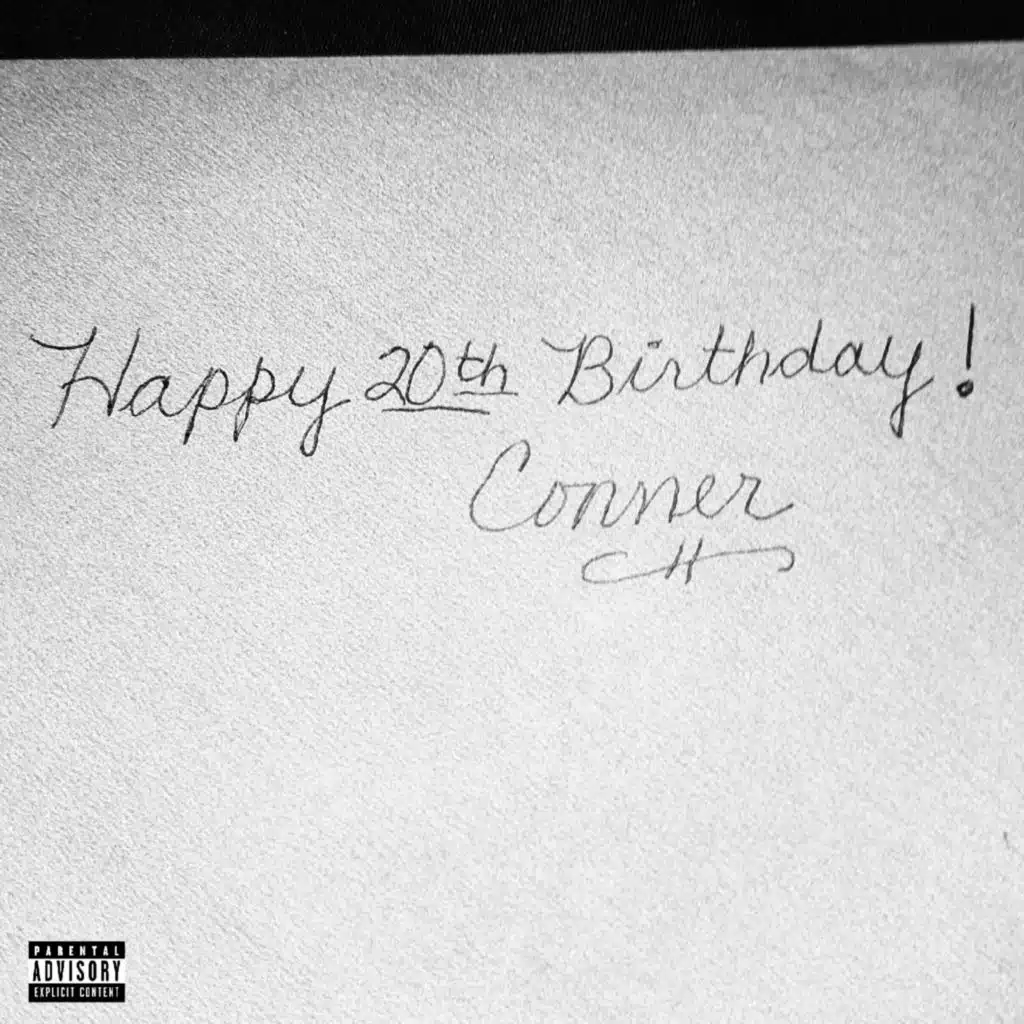 Happy 20th Birthday!
Conner
PARENTAL
ADVISORY
EXPLICIT CONTENT